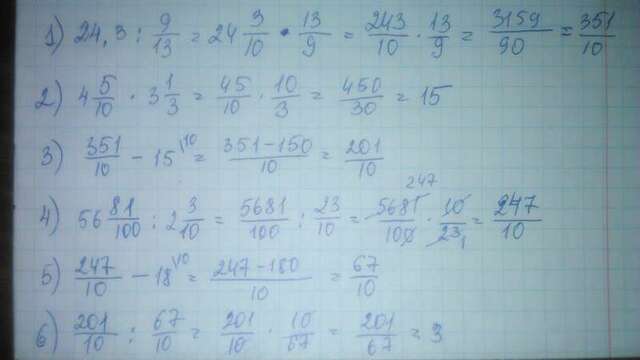 1) 24,3 : 9/13 = 24 3/10 · 13/9 = 243/10 · 13/9 = 3159/90 = 351/10
2) 4 5/10 · 3 1/3 = 45/10 · 10/3 = 450/30 = 15
3) 351/10 - 15^\10 = 351-150/10 = 201/10
4) 56 81/100 : 2 3/10 = 5681/100 : 23/10 = 5681 247/100 · 10/23 1 = 247/10
5) 247/10 - 18^\10 = 247-180/10 = 67/10
6) 201/10 : 67/10 = 201/10 · 10/67 = 201/67 = 3